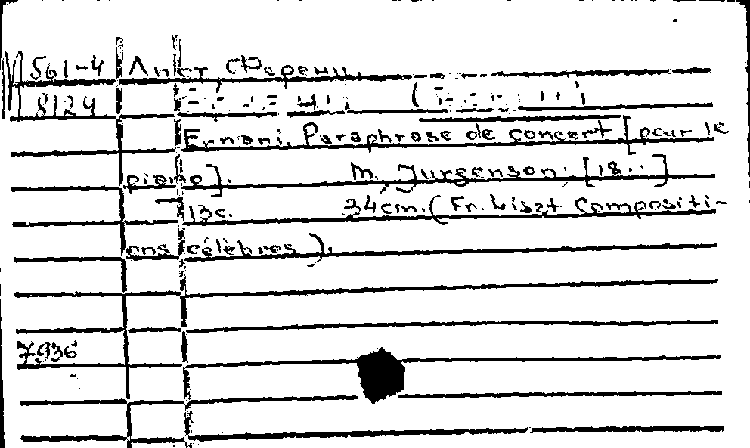 М 561-4 Лист, Ференц.
8124
Ernani. Paraphrase de concert [pour le
piano].   M., Jurgenson. [18..]
13с.   34cm. (Fr. Liszt Compositi-
ons célèbres).
7936